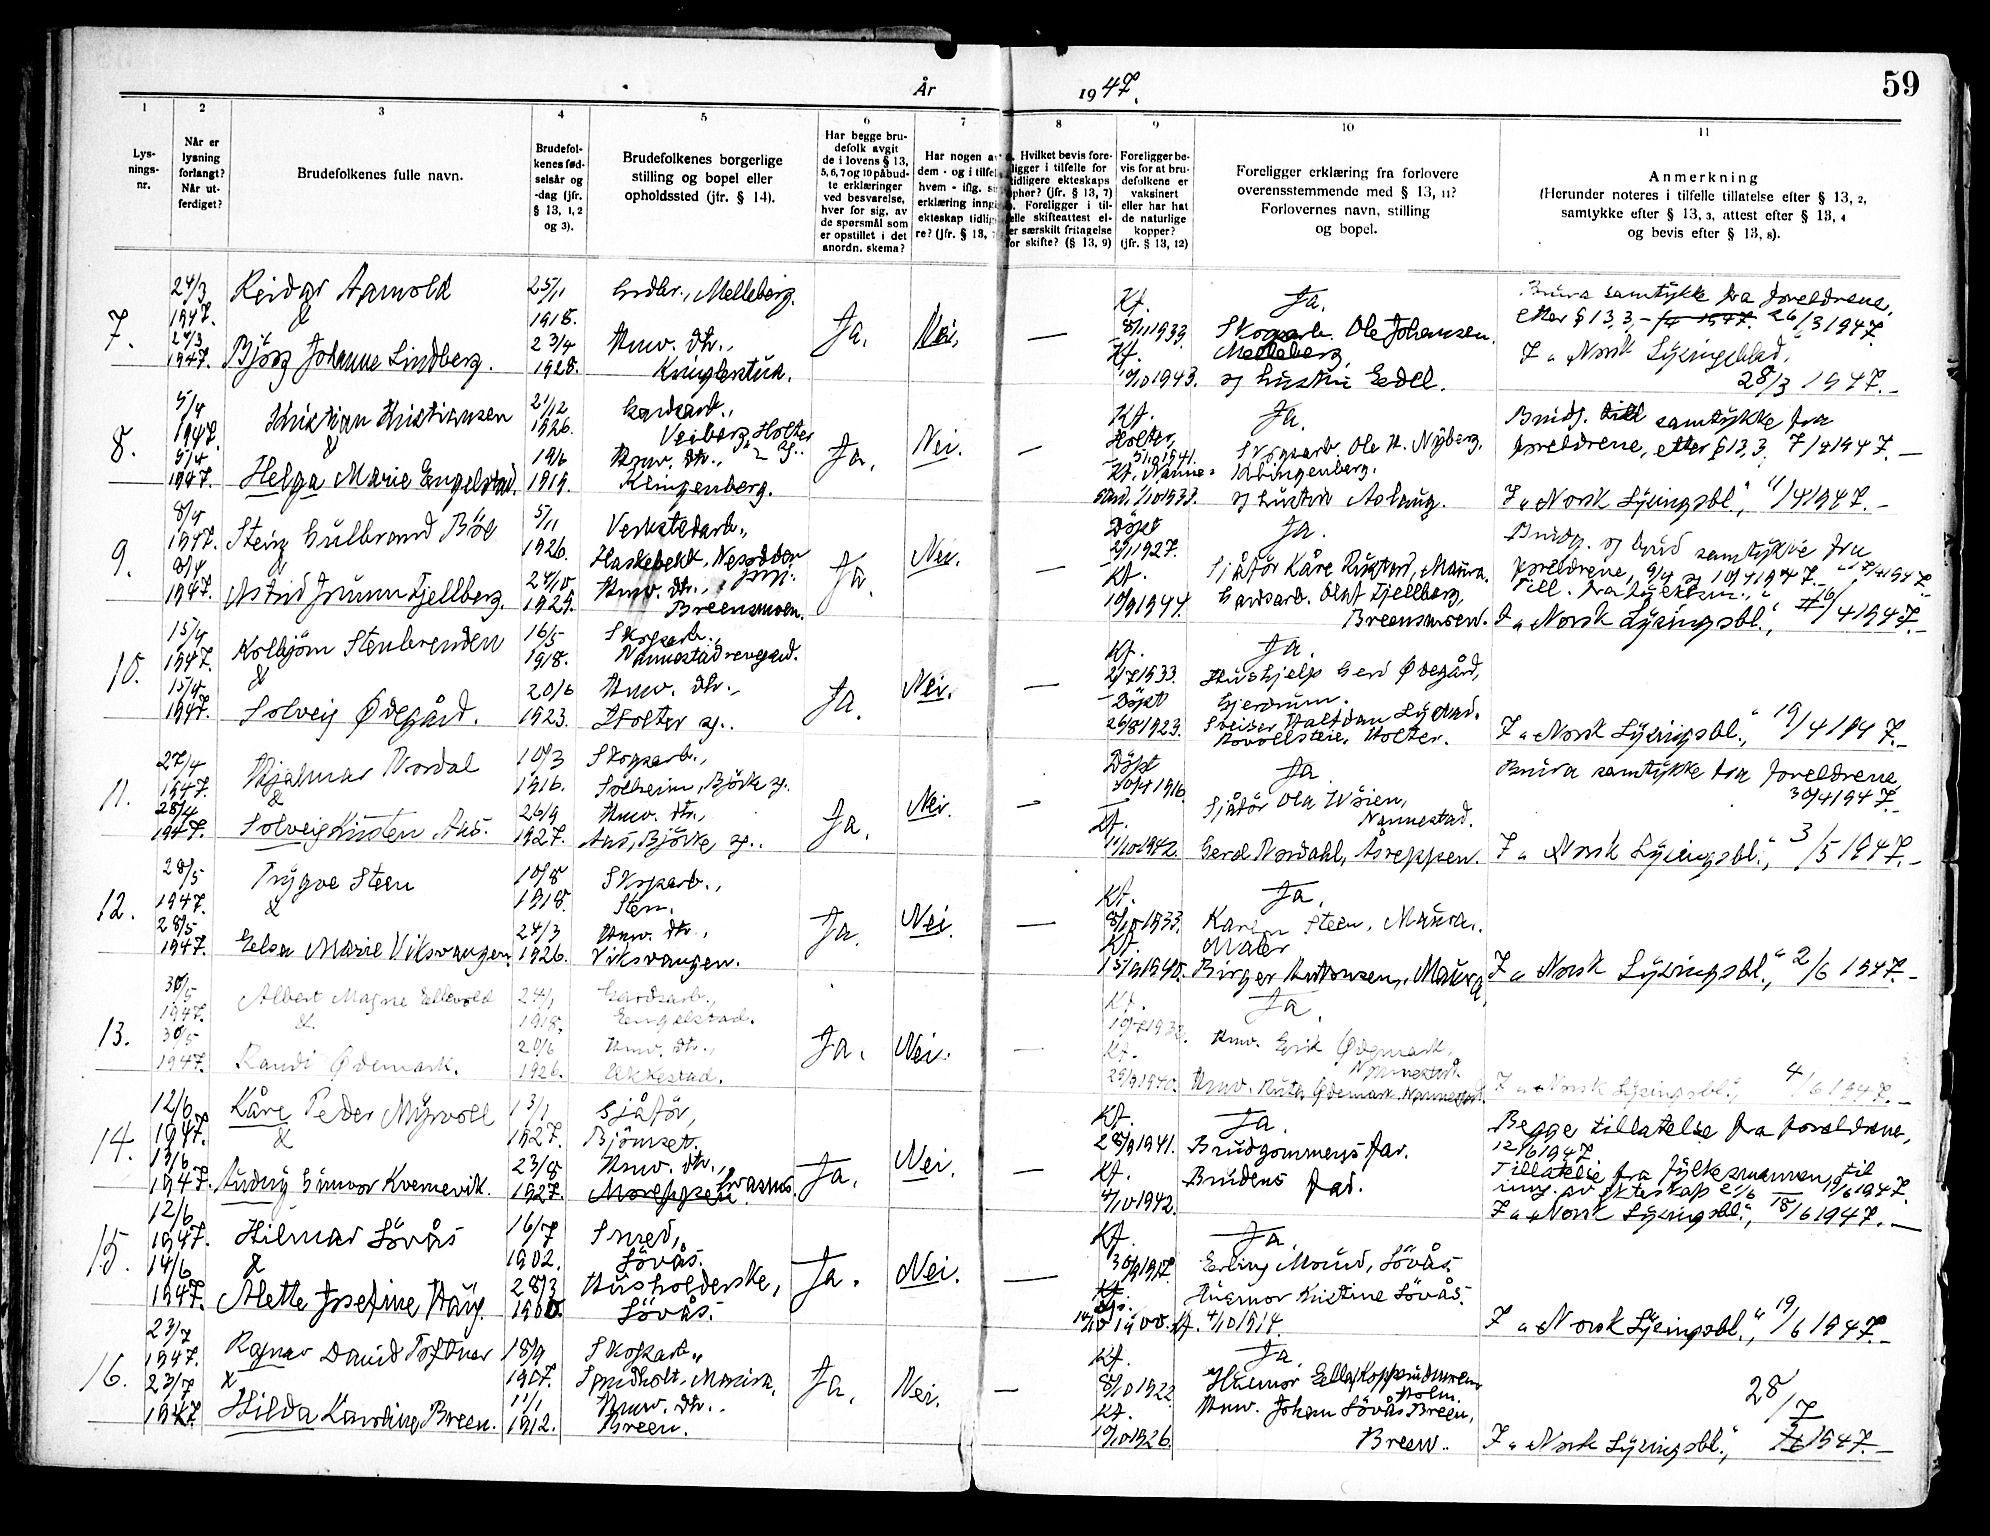 59
År 1947.
1 2 3 4 5 6 7 8 9 10 11
Lys-
nings-
nr.
Når er
lysning
forlangt?
Når ut-
ferdiget?
Brudefolkenes fulle navn.
Brudefol-
kenes fød-
selsår og
-dag (jfr.
§ 13, 1, 2
og 3).
Brudefolkenes borgerlige
stilling og bopel eller
opholdssted (jfr. § 14).
Har begge bru-
defolk avgit
de i lovens § 13,
5, 6, 7 og 10 påbud-
te erklæringer
ved besvarelse,
hver for sig, av
de spørsmål som
er opstillet i det
anordn. skema?
Har nogen a
dem - og i tilfel
hvem - iflg.
erklæring inng
ekteskap tidlig
re? (Jfr. § 13,
Hvilket bevis fore-
ligger i tilfelle for
tidligere ekteskaps
ophør? (jfr. § 13, 7)
Foreligger i til-
elle skifteattest el-
er særskilt fritagelse
for skifte? (§ 13, 9)
Foreligger be-
vis for at bru-
defolkene er
vaksinert
eller har hat
de naturlige
kopper?
(jfr. § 13, 12)
Foreligger erklæring fra forlovere
overensstemmende med § 13, 11?
Forlovernes navn, stilling
og bopel.
Anmerkning
(Herunder noteres i tilfelle tillatelse efter § 13, 2,
samtykke efter § 13, 3, attest efter § 13, 4
og bevis efter § 13, 8).
7.
24/3
1947.
24/3
1947.
Reidar Aamold
&
Bjørg Johanne Lindberg.
25/11
1918.
23/4
1928.
Melleberg.
Ungv. dtr.,
Ja.
Nei.
—
Kf.
8/11 1933.
Kf.
Ja.
Skogsarb. Ole Johansen.
Melleberg,
og hustru Edel.
samtykke fra foreldrene,
etter § 13 3, 26/3 1947.
I „Norsk Lysingsblad,
28/3 1947.—
8.
5/4
1947.
5/4
1947.
Kristian Kristiansen
&
Helga Marie Engelstad.
21/12
1926.
19/6
1919.
Gardsarb.,
Veiberg, Holter
Klingenberg.
Ja.
Nei.
—
Kf.
Holter
Ja.
Skogsarb. Ole H. Nyberg.
Klingenberg.
og hustru Aslaug.
Brudg. samtykke fra
foreldrene, etter § 13 3, 7/4 1947.—
I „Norsk Lysingsbl.“, 11/4 1947.—
9.
8/4
1947.
8/4
1947.
Stein Gulbrand Böe
&
5/11
1926.
24/10
1925.
Verkstedarb.,
Haskebekk, Nesodden
Breensmoen.
Ja
Nei.
—
Döpt
1927.
Kf.
10/9 1944.
Ja.
Sjåför Kåre Maura.
Gardsarb. Olaf Fjellberg,
Breensmoen.
Brudg. og brud samtykke fra
foreldrene, 9/4 og 10/4 1947.—
I „Norsk Lysingsbl.“, 16/4 1947.—
10.
15/4
1947.
15/4
1947.
Kolbjörn Stenbrenden
&
Solveig Ødegård.
16/5
1918.
20/6
1923.
Skogsarb.,
Holter sg..
Ja.
Nei.
—
Kf.
2/7 1933.
Döpt
26/8 1923.
Ja.
Hushjelp Gerd Ødegård,
Gjerdrum.
Holter.
I „Norsk Lysingsbl.“, 19/4 1947.—
11.
27/4
1947.
28/4
1947.
Hjalmar Nordal
&
Solveig Kirsten Aas.
10/3
1916.
26/9
1927.
Skogsarb.,
Solheim, Björke sg.
Ungv. dtr.,
Aas, Björke sg..
Ja.
Nei.
—
Döpt
30/4 1916.
Kf.
11/10 1942.
Ja
Sjåför Ola Wöien,
Nannestad.
Gerd Nordahl, Åsreppen.
Brura samtykke fra foreldrene
30/4 1947.
I „Norsk Lysingsbl.“, 3/5 1947.—
12.
28/5
1947.
28/5
1947.
Trygve Steen
&
Elsa Marie Viksvangen.
10/8
1918.
24/3
1926.
Skogsarb.,
Sten.
Ungv. dtr.,
Viksvangen.
Ja.
Nei.
—
Kf.
8/10 1933.
Kf.
Ja.
Karin Steen, Maura.
Maler
Birger Antonsen, Maura,
I „Norsk Lysingsbl.“, 2/6 1947.—
13.
30/5
1947.
30/5
1947.
Albert Magne Ellevold
&
Randi Ødemark.
24/1
1918.
20/6
1926.
Gardsarb.,
Engelstad.
Ungv. dtr.,
Ukkestad.
Ja.
Nei.
—
Kf.
Kf.
29/9 1940.
Ja.
Ungv. Erik Ødemark,
Nannestad.
Ungv. Ruth Ødemark, Nannestad.
I „Norsk Lysingsbl.“, 4/6 1947.—
14.
12/6
1947.
13/6
1947.
Kåre Peder Myrvoll
&
Audny Gunvor Kvernevik.
13/1
1927.
23/8
1927.
Sjåför,
Björnset.
Ungv. dtr.,
Ja.
Nei.
—
Kf.
28/9 1941.
Kf.
4/10 1942.
Ja.
Brudgommens far.
Brudens far.
Begge tillatelse fra foreldrene,
12/6 1947
Tillatelse fra fylkesmannen til
inng. av ekteskap
I „Norsk Lysingsbl.“, 18/6 1947.—
15.
12/6
1947.
14/6
1947.
Hilmar Lövås
&
Alette Josefine Haug.
16/7
1902.
28/3
1900.
Smed,
Lövås.
Husholderske,
Lövås.
Ja.
Nei.
—
Kf.
30/9 1917.
Kf. 4/10 1914.
Ja.
Erling Mound, Lövås.
Husmor Kristine Lövås.
I „Norsk Lysingsbl.“, 19/6 1947.—
16.
23/7
1947.
23/7
1947.
Ragnar David Toftner
&
Hilda Karoline Breen.
18/9
1907.
11/1
1912.
Skogsarb.,
Ungv. dtr..
Breen.
Ja.
Nei.
—
Kf.
8/10 1922
Kf.
10/10 1926.
Ja.
Husmor
Holm.
Ungv. Johan Lövås Breen,
Breen.
28/7
I „Norsk Lysingsbl.“, 1947.—